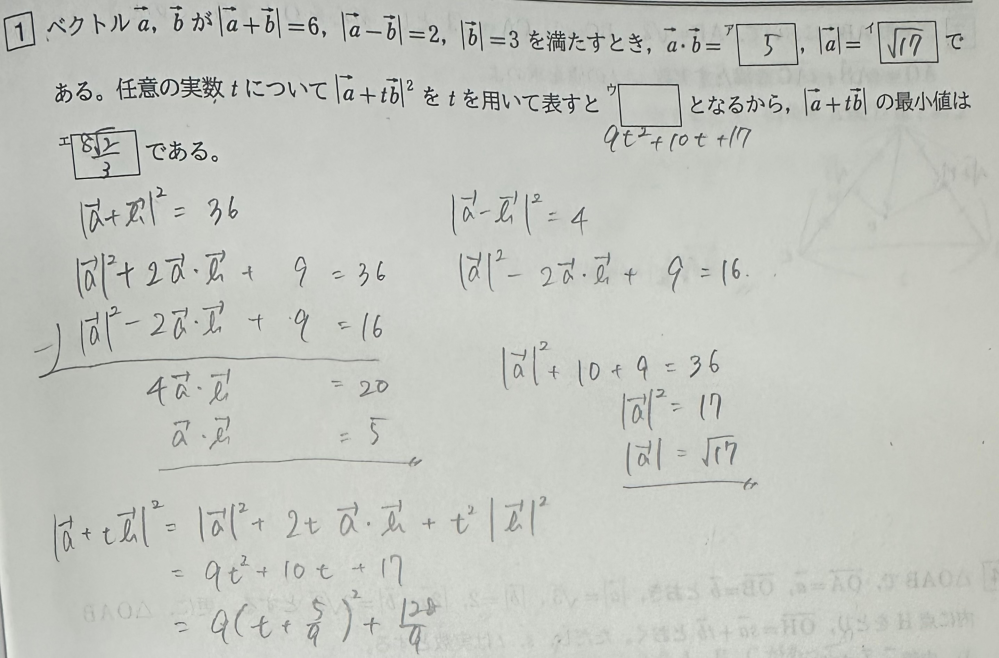 1 ベクトル a⃗, b⃗ が |a⃗+b⃗|=6, |a⃗−b⃗|=2, |b⃗|=3 を満たすとき, a⃗·b⃗= ア 5 , |a⃗|= イ √17 で
ある。任意の実数 t について |a⃗+tb⃗|² を t を用いて表すと ウ となるから, |a⃗+tb⃗| の最小値は
9t²+10t+17
エ 8√2/3 である。
|a⃗+b⃗|² = 36
|a⃗|²+2a⃗·b⃗ + 9 = 36
−) |a⃗|²−2a⃗·b⃗ + 9 = 16
4a⃗·b⃗ = 20
a⃗·b⃗ = 5
|a⃗−b⃗|² = 4
|a⃗|² − 2a⃗·b⃗ + 9 = 16.
|a⃗|² + 10 + 9 = 36
|a⃗|² = 17
|a⃗| = √17
|a⃗+tb⃗|² = |a⃗|² + 2t a⃗·b⃗ + t² |b⃗|²
= 9t² + 10t + 17
= 9(t + 5/9)² + 128/9